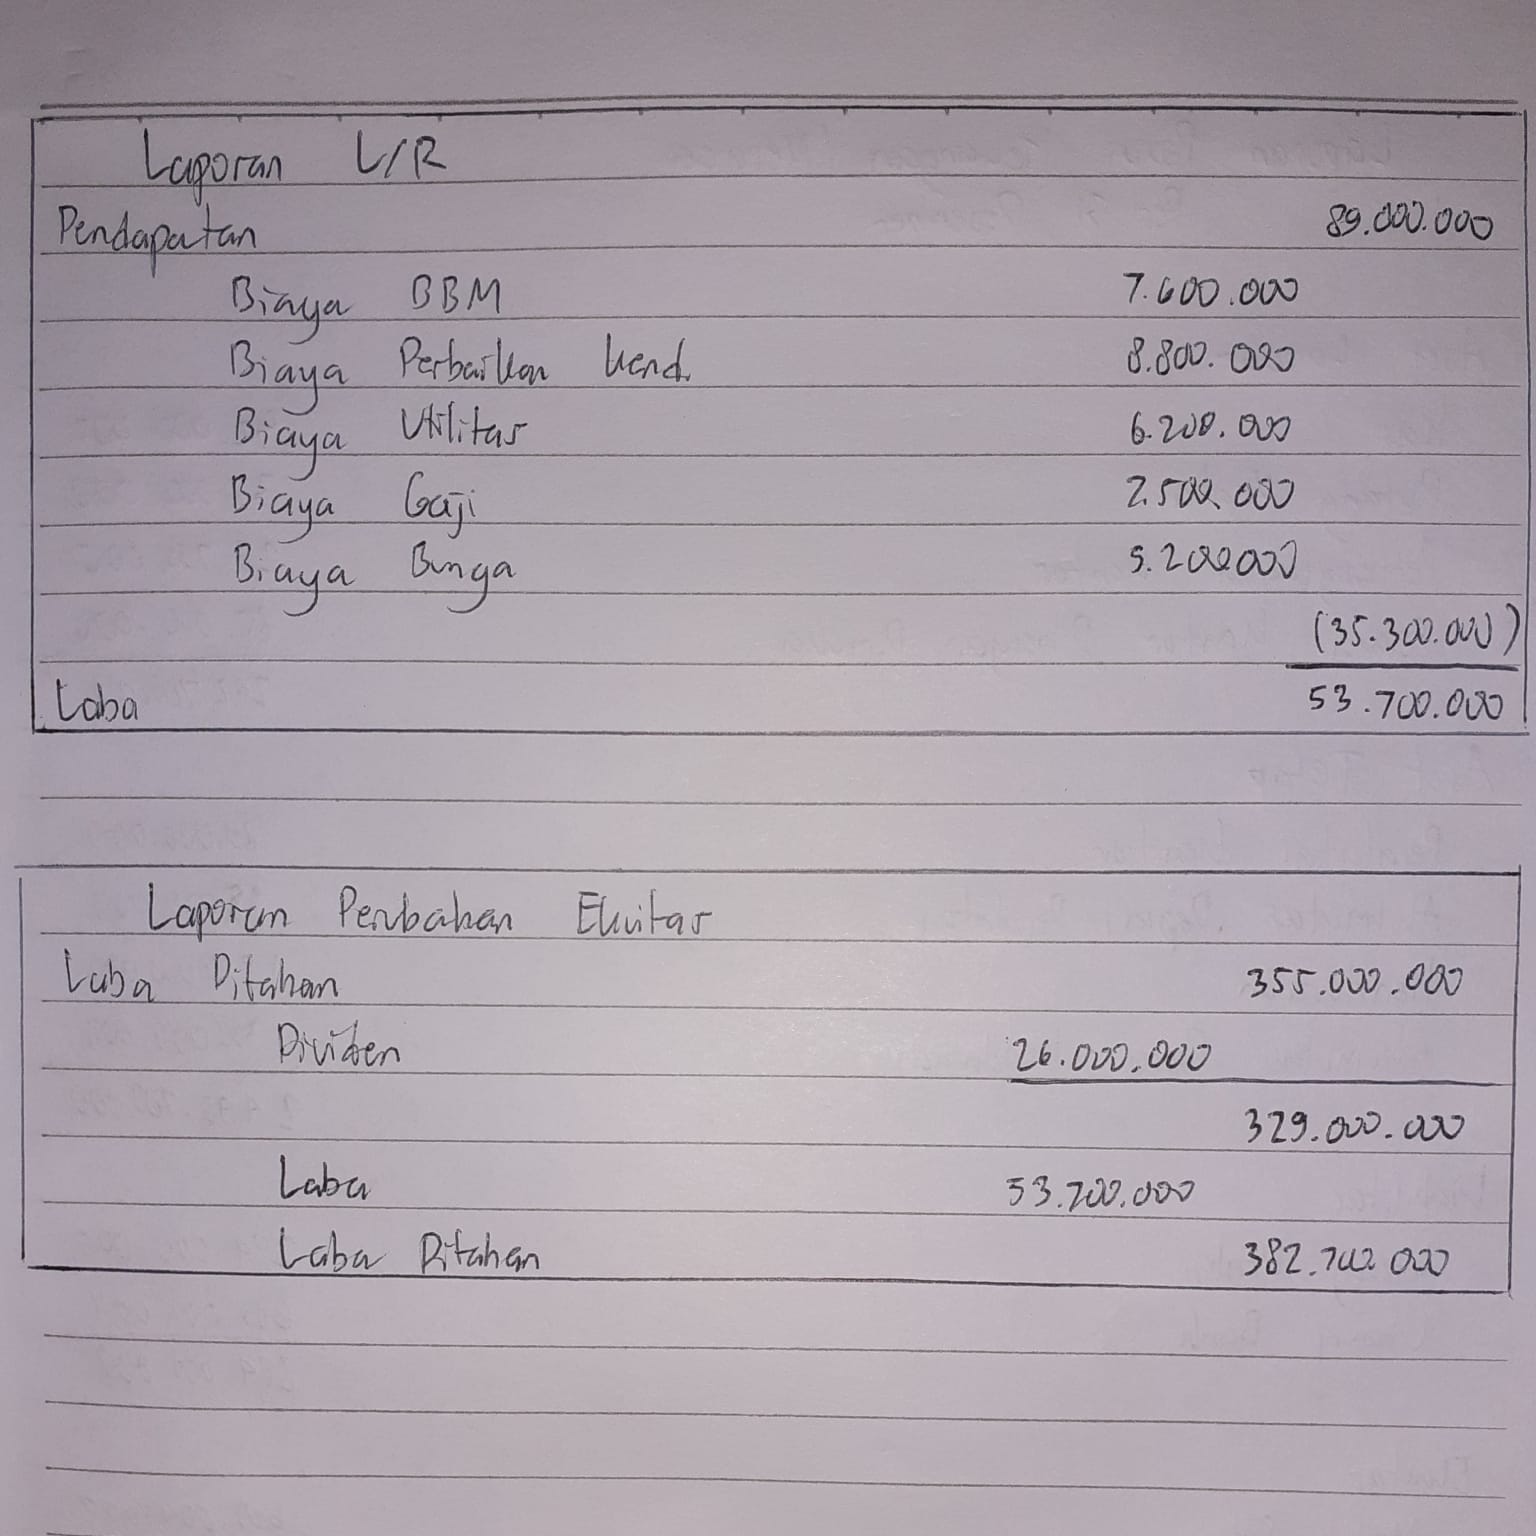 Laporan L/R
Pendapatan 89.000.000
Biaya BBM 7.600.000
Biaya Perbaikan kend. 8.800.000
Biaya Utilitas 6.200.000
Biaya Gaji 7.500.000
Biaya Bunga 5.200000
(35.300.000)
Laba 53.700.000
Laporan Perubahan Ekuitas
Laba Ditahan 355.000.000
Dividen 26.000.000
329.000.000
Laba 53.700.000
Laba Ditahan 382.700.000